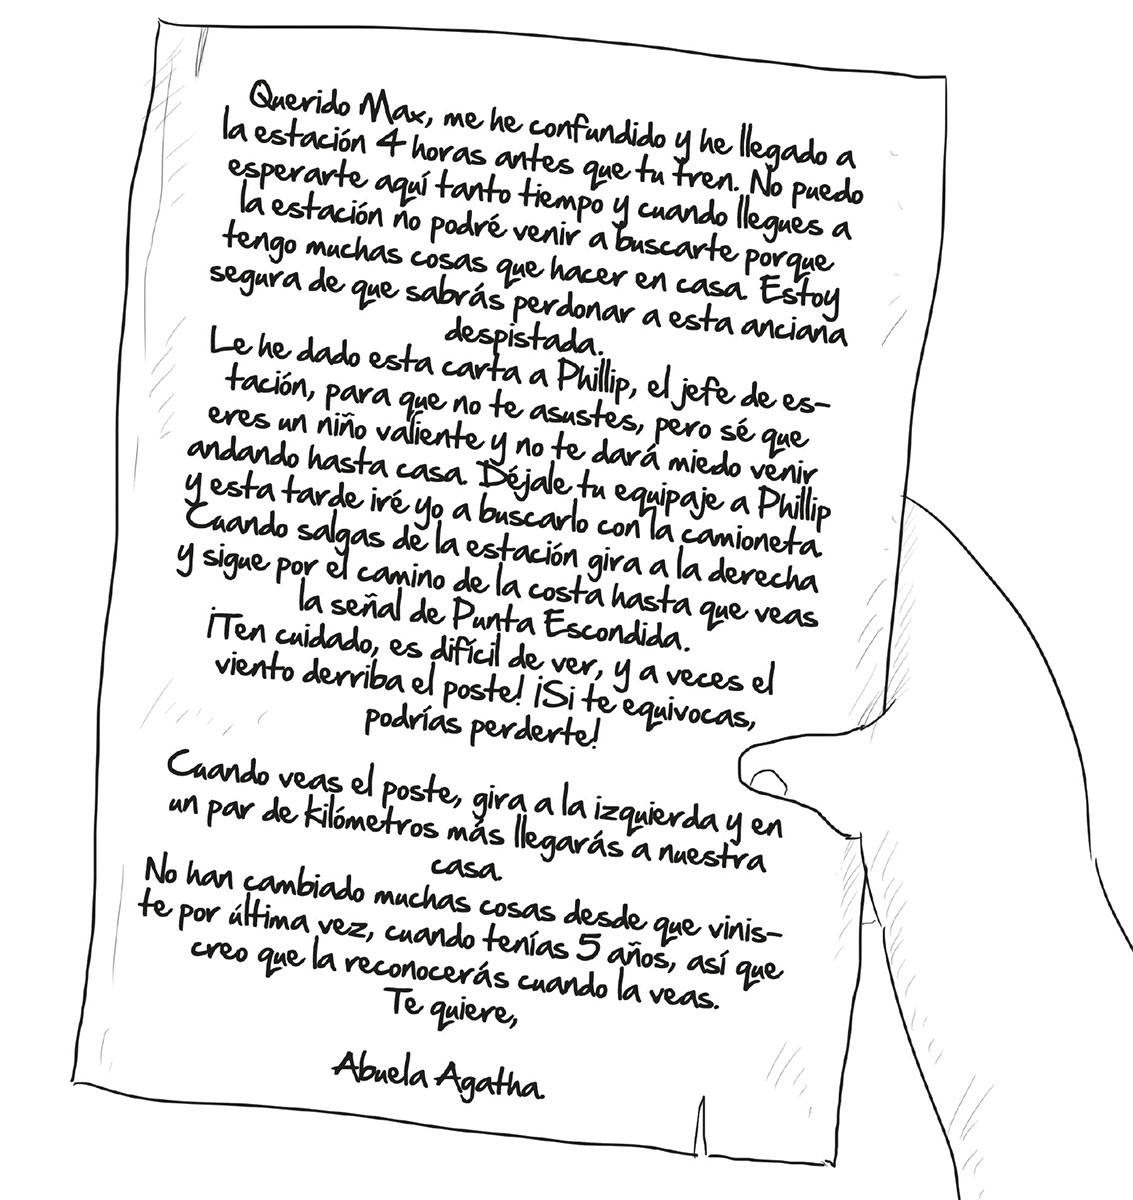 Querido Max, me he confundido y he llegado a
la estación 4 horas antes que tu tren. No puedo
esperarte aquí tanto tiempo y cuando llegues a
la estación no podré venir a buscarte porque
tengo muchas cosas que hacer en casa. Estoy
segura de que sabrás perdonar a esta anciana
despistada.
Le he dado esta carta a Phillip, el jefe de es-
tación, para que no te asustes, pero sé que
eres un niño valiente y no te dará miedo venir
andando hasta casa. Déjale tu equipaje a Phillip
y esta tarde iré yo a buscarlo con la camioneta.
Cuando salgas de la estación gira a la derecha
y sigue por el camino de la costa hasta que veas
la señal de Punta Escondida.
¡Ten cuidado, es difícil de ver, y a veces el
viento derriba el poste! ¡Si te equivocas,
podrías perderte!
Cuando veas el poste, gira a la izquierda y en
un par de kilómetros más llegarás a nuestra
casa.
No han cambiado muchas cosas desde que vinis-
te por última vez, cuando tenías 5 años, así que
creo que la reconocerás cuando la veas.
Te quiere,
Abuela Agatha.